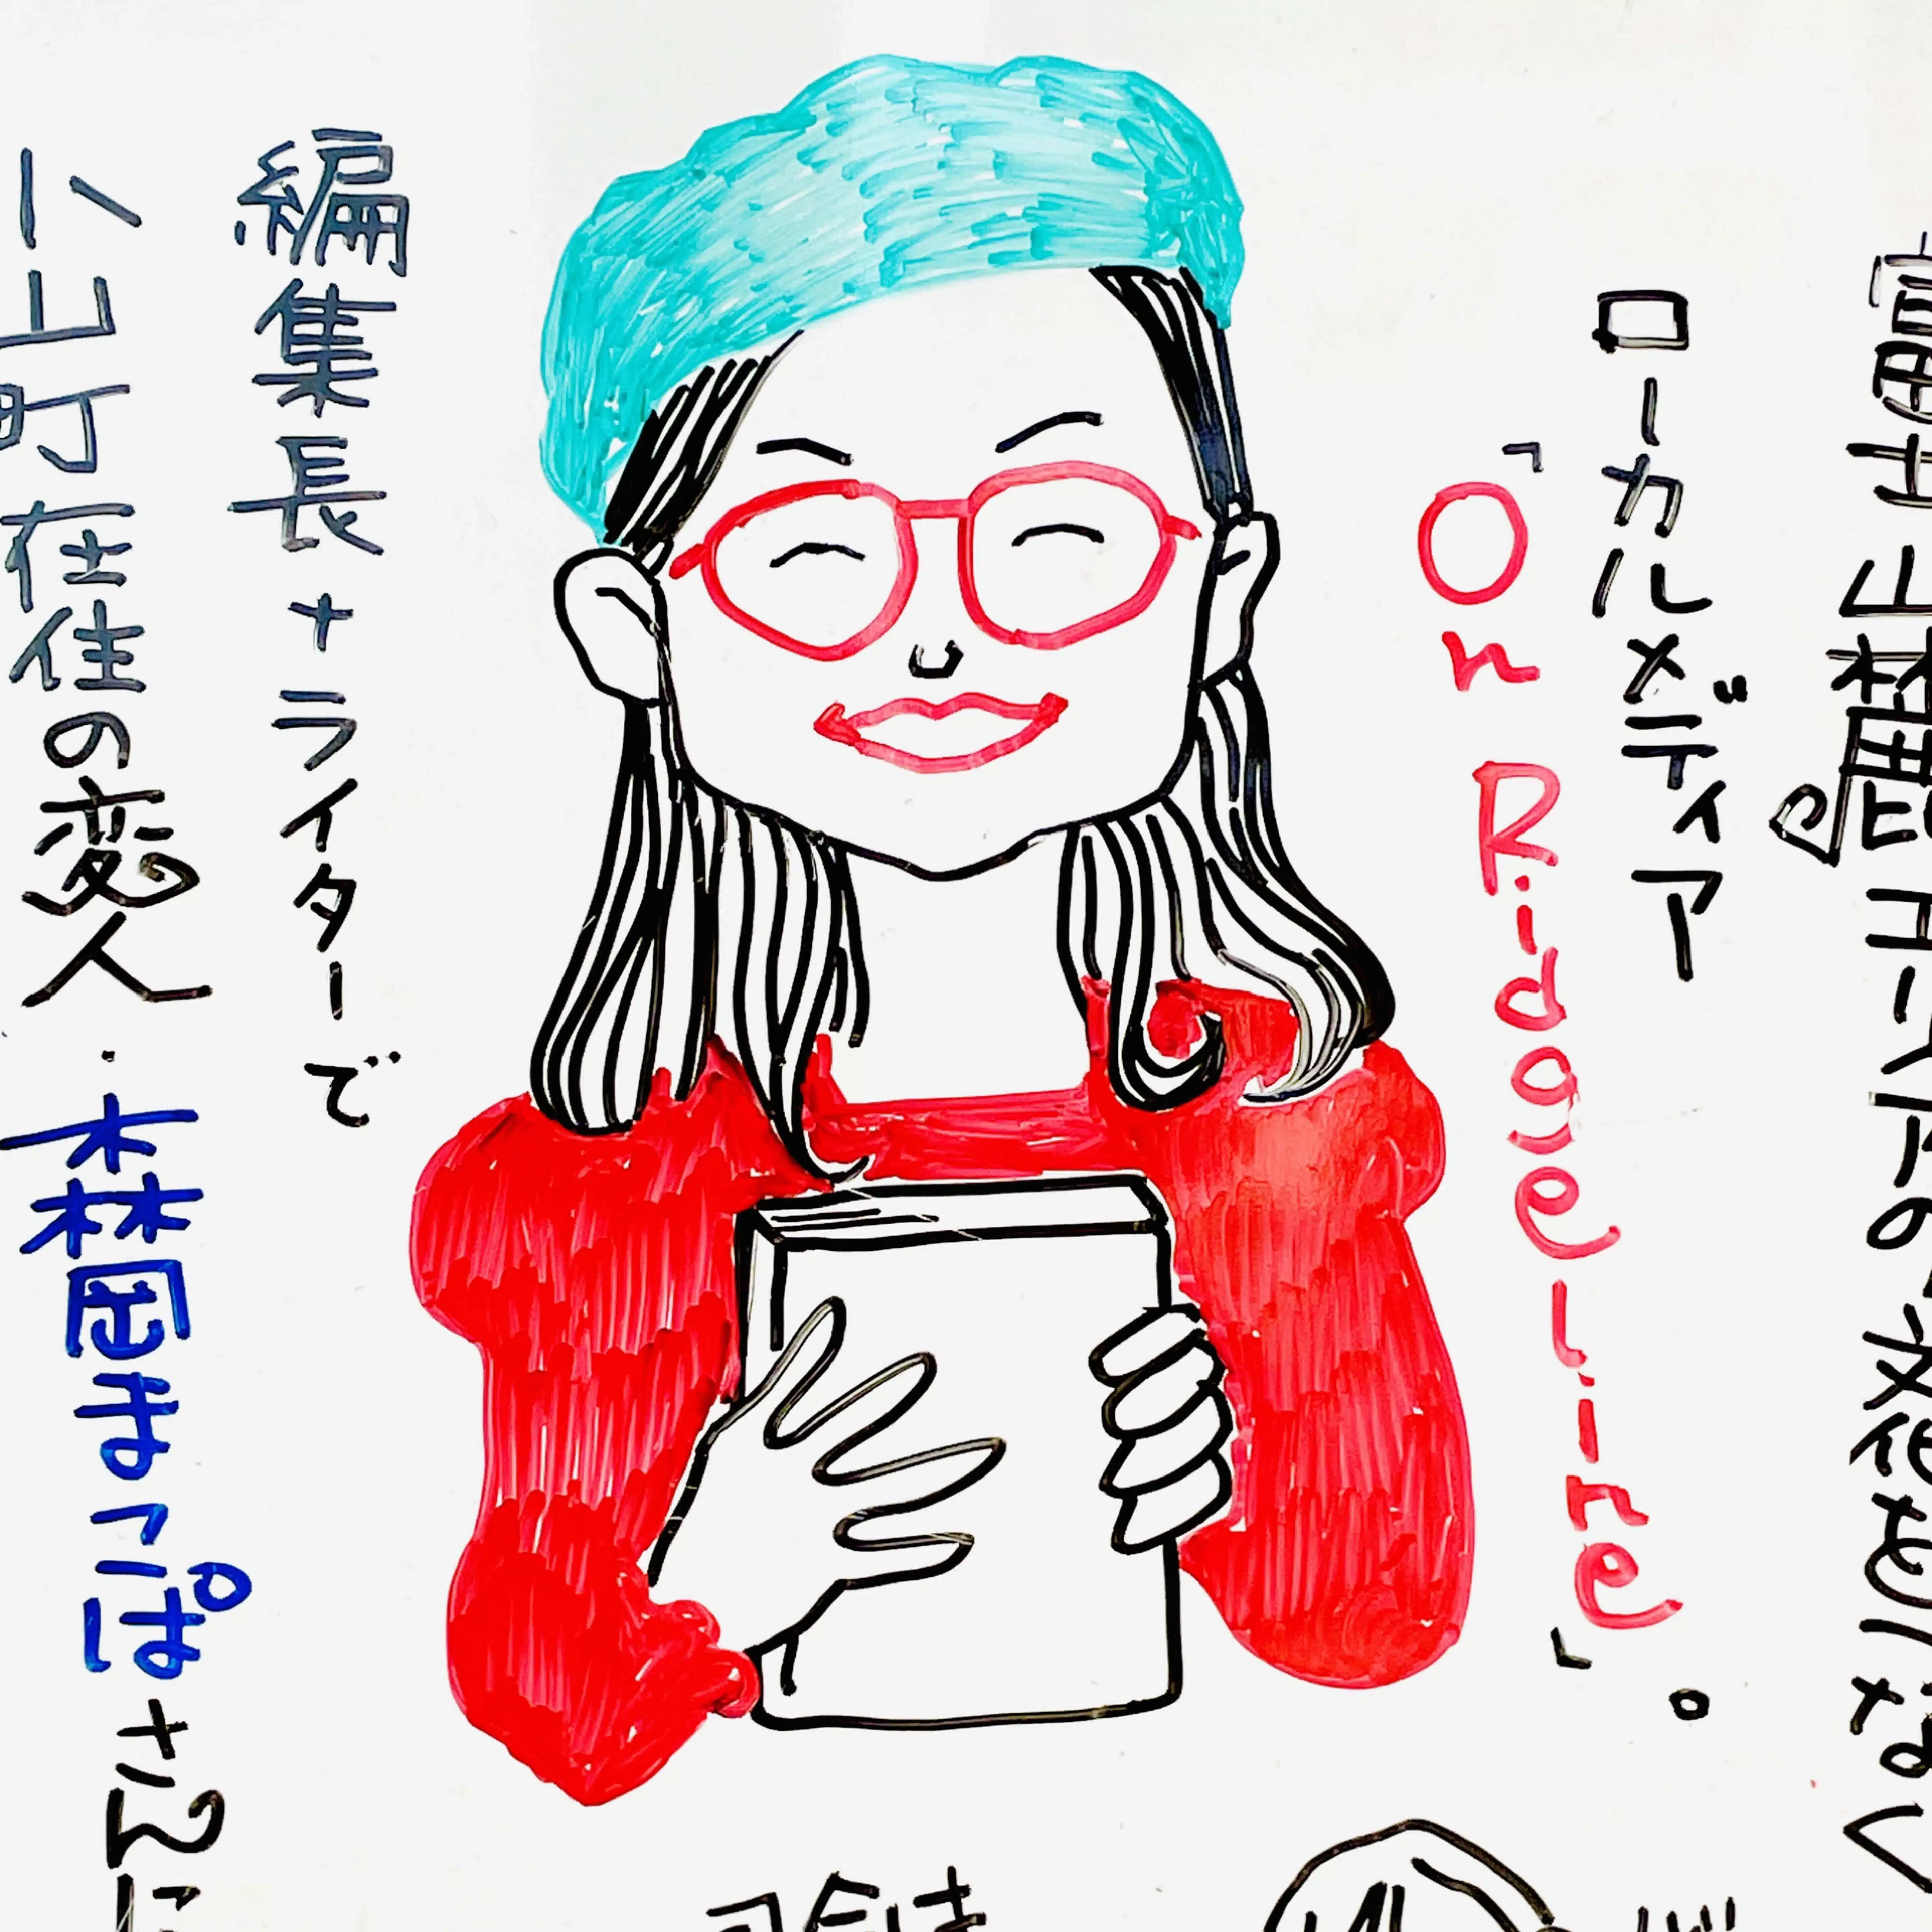 富士山麓エリアの文化をつなぐ
ローカルメディア
「On Ridgeline」。
編集長+ライターで
小山町在住の変人・森岡まこぱさんに